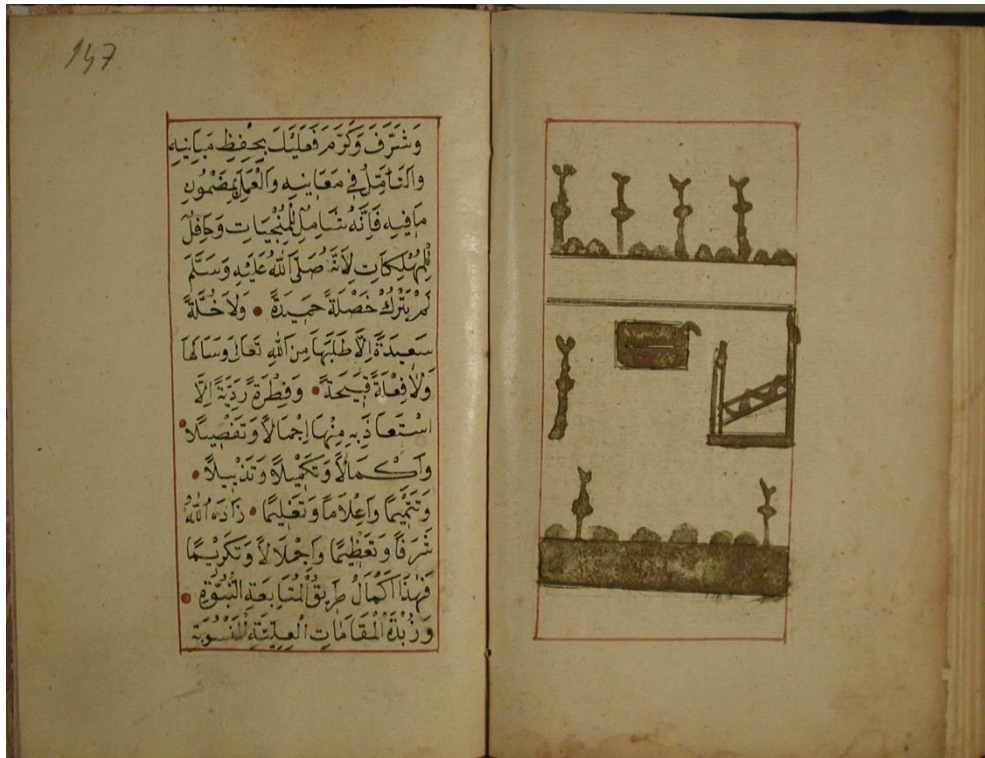 147
وَشَرَّفَ وَكَرَّمَ فَعَلَيْكَ بِحِفْظِ مَبَانِيهِ
وَالتَّأَمُّلِ فِي مَعَانِيهِ وَالْعَمَلِ بِمَضْمُونِ
مَا فِيهِ فَاِنَّهُ شَامِلٌ لِلْمُنْجِيَاتِ وَحَافِلٌ
لِلْمُهْلِكَاتِ لِاَنَّهُ صَلَّى اللّٰهُ عَلَيْهِ وَسَلَّمَ
لَمْ يَتْرُكْ خَصْلَةً حَمِيدَةً • وَلَا خُلَّةً
سَعِيدَةً اِلَّا طَلَبَهَا مِنَ اللّٰهِ تَعَالٰى وَسَالَهَا
وَلَا فِعْلَةً قَبِيحَةً • وَفِطْرَةً رَدِيَّةً اِلَّا
اسْتَعَاذَ بِهِ مِنْهَا اِجْمَالًا وَتَفْصِيلًا •
وَاكْمَالًا وَتَكْمِيلًا وَتَذْيِيلًا •
وَتَتْمِيمًا وَاِعْلَامًا وَتَعْلِيمًا • زَادَهُ اللّٰهُ
شَرَفًا وَتَعْظِيمًا وَاِجْلَالًا وَتَكْرِيمًا
فَهٰذَا اَكْمَالُ طَرِيقِ الْمُتَابَعَةِ النَّبَوِيَّةِ •
وَزُبْدَةُ الْمَقَامَاتِ الْعَلِيَّةِ